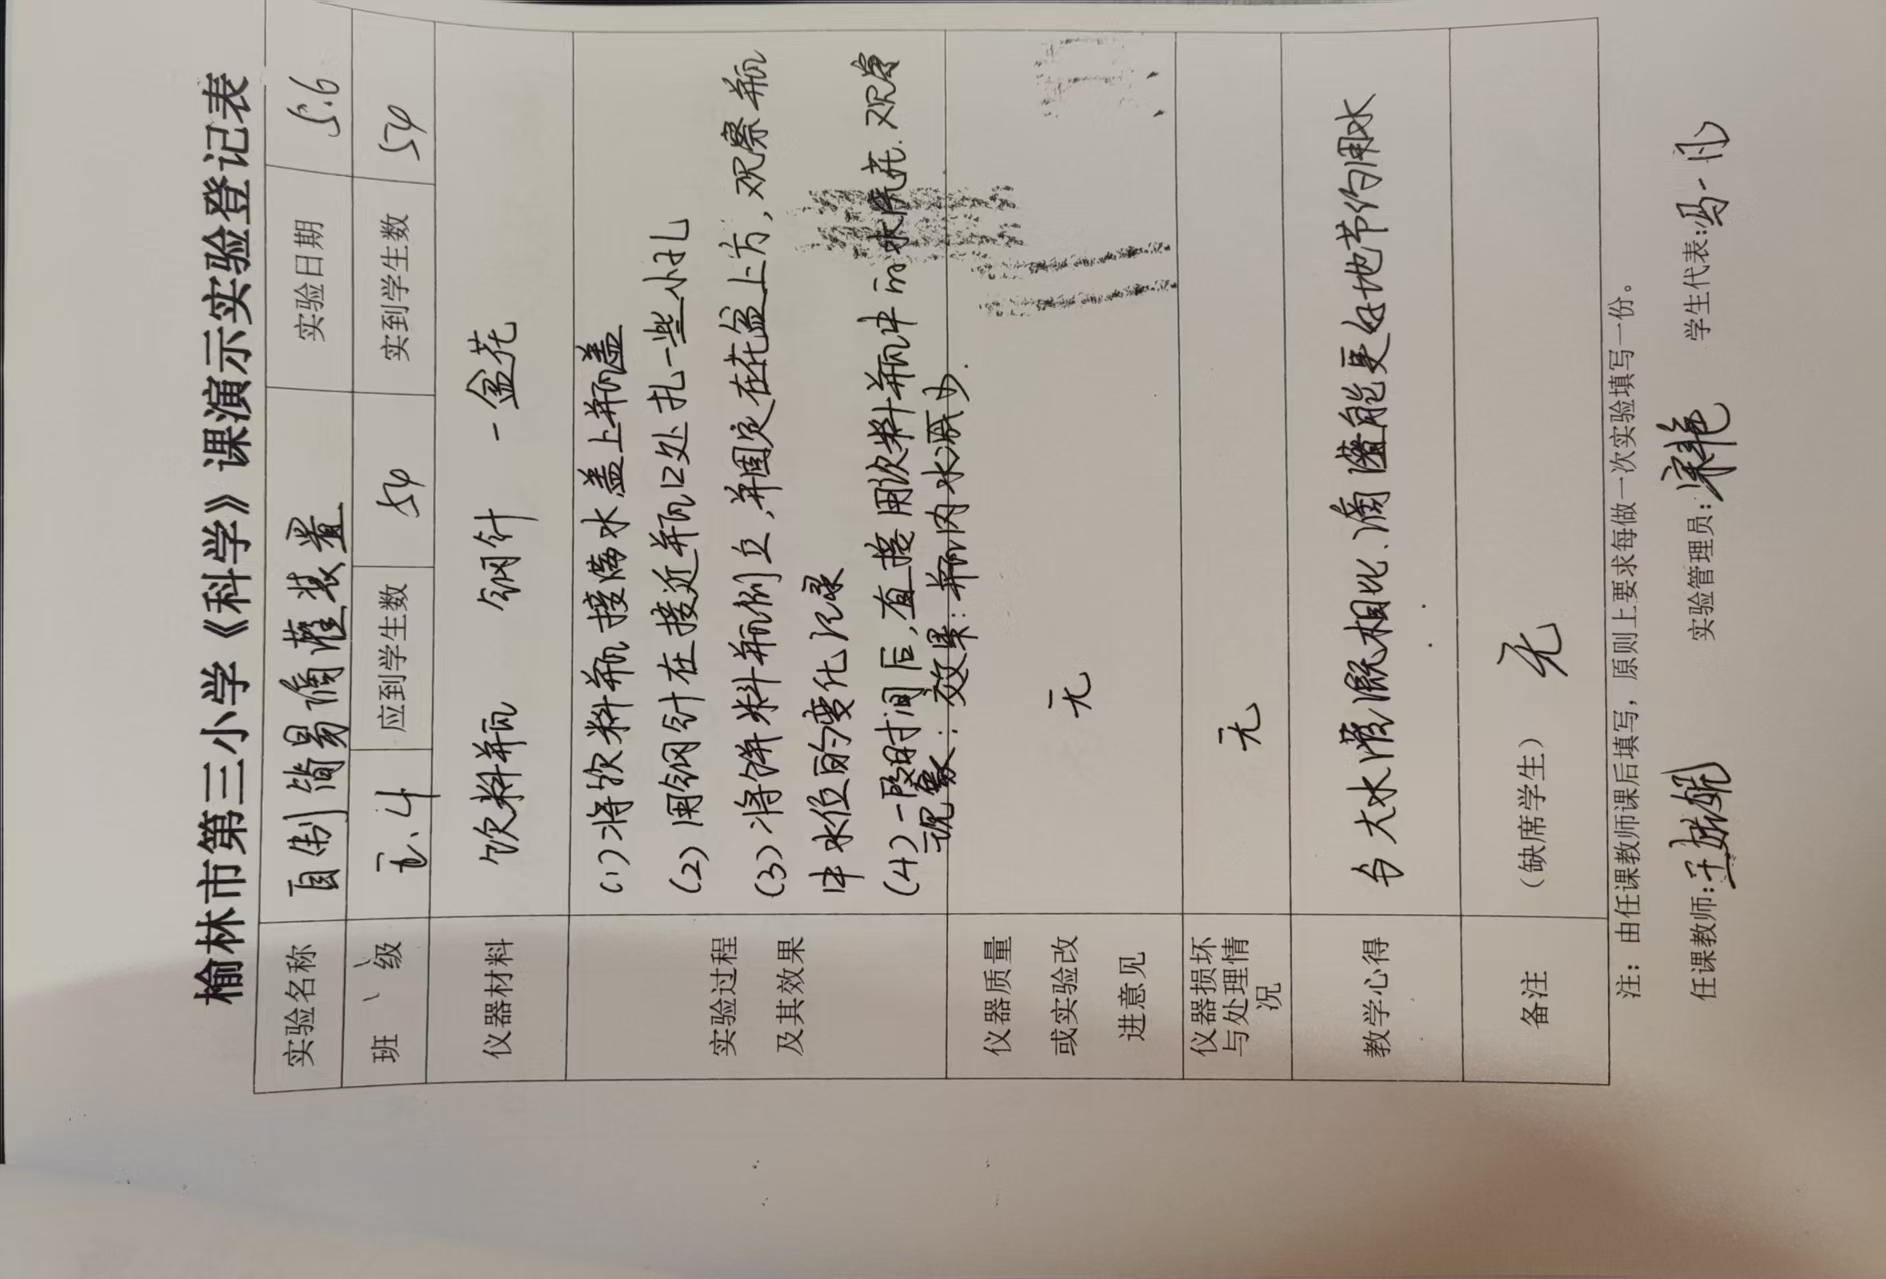 榆林市第三小学《科学》课演示实验登记表
实验名称 自制简易滴灌装置 实验日期 5.6
班级 五.4 应到学生数 54 实到学生数 54
仪器材料 饮料瓶 钢针 一盆花
实验过程
及其效果
(1)将饮料瓶接满水盖上瓶盖
(2)用钢针在接近瓶口处扎一些小孔
(3)将饮料瓶倒立,并固定在花盆上方,观察瓶
中水位的变化记录
(4)一段时间后,直接用饮料瓶中的水浇花.观察
现象: 效果:瓶内水减少.
仪器质量
或实验改
进意见
无
仪器损坏
与处理情
况
无
教学心得 与大水漫灌相比、滴灌能更好地节约用水
备注 (缺席学生) 无
注:由任课教师课后填写,原则上要求每做一次实验填写一份。
任课教师: 实验管理员: 学生代表:冯一凡